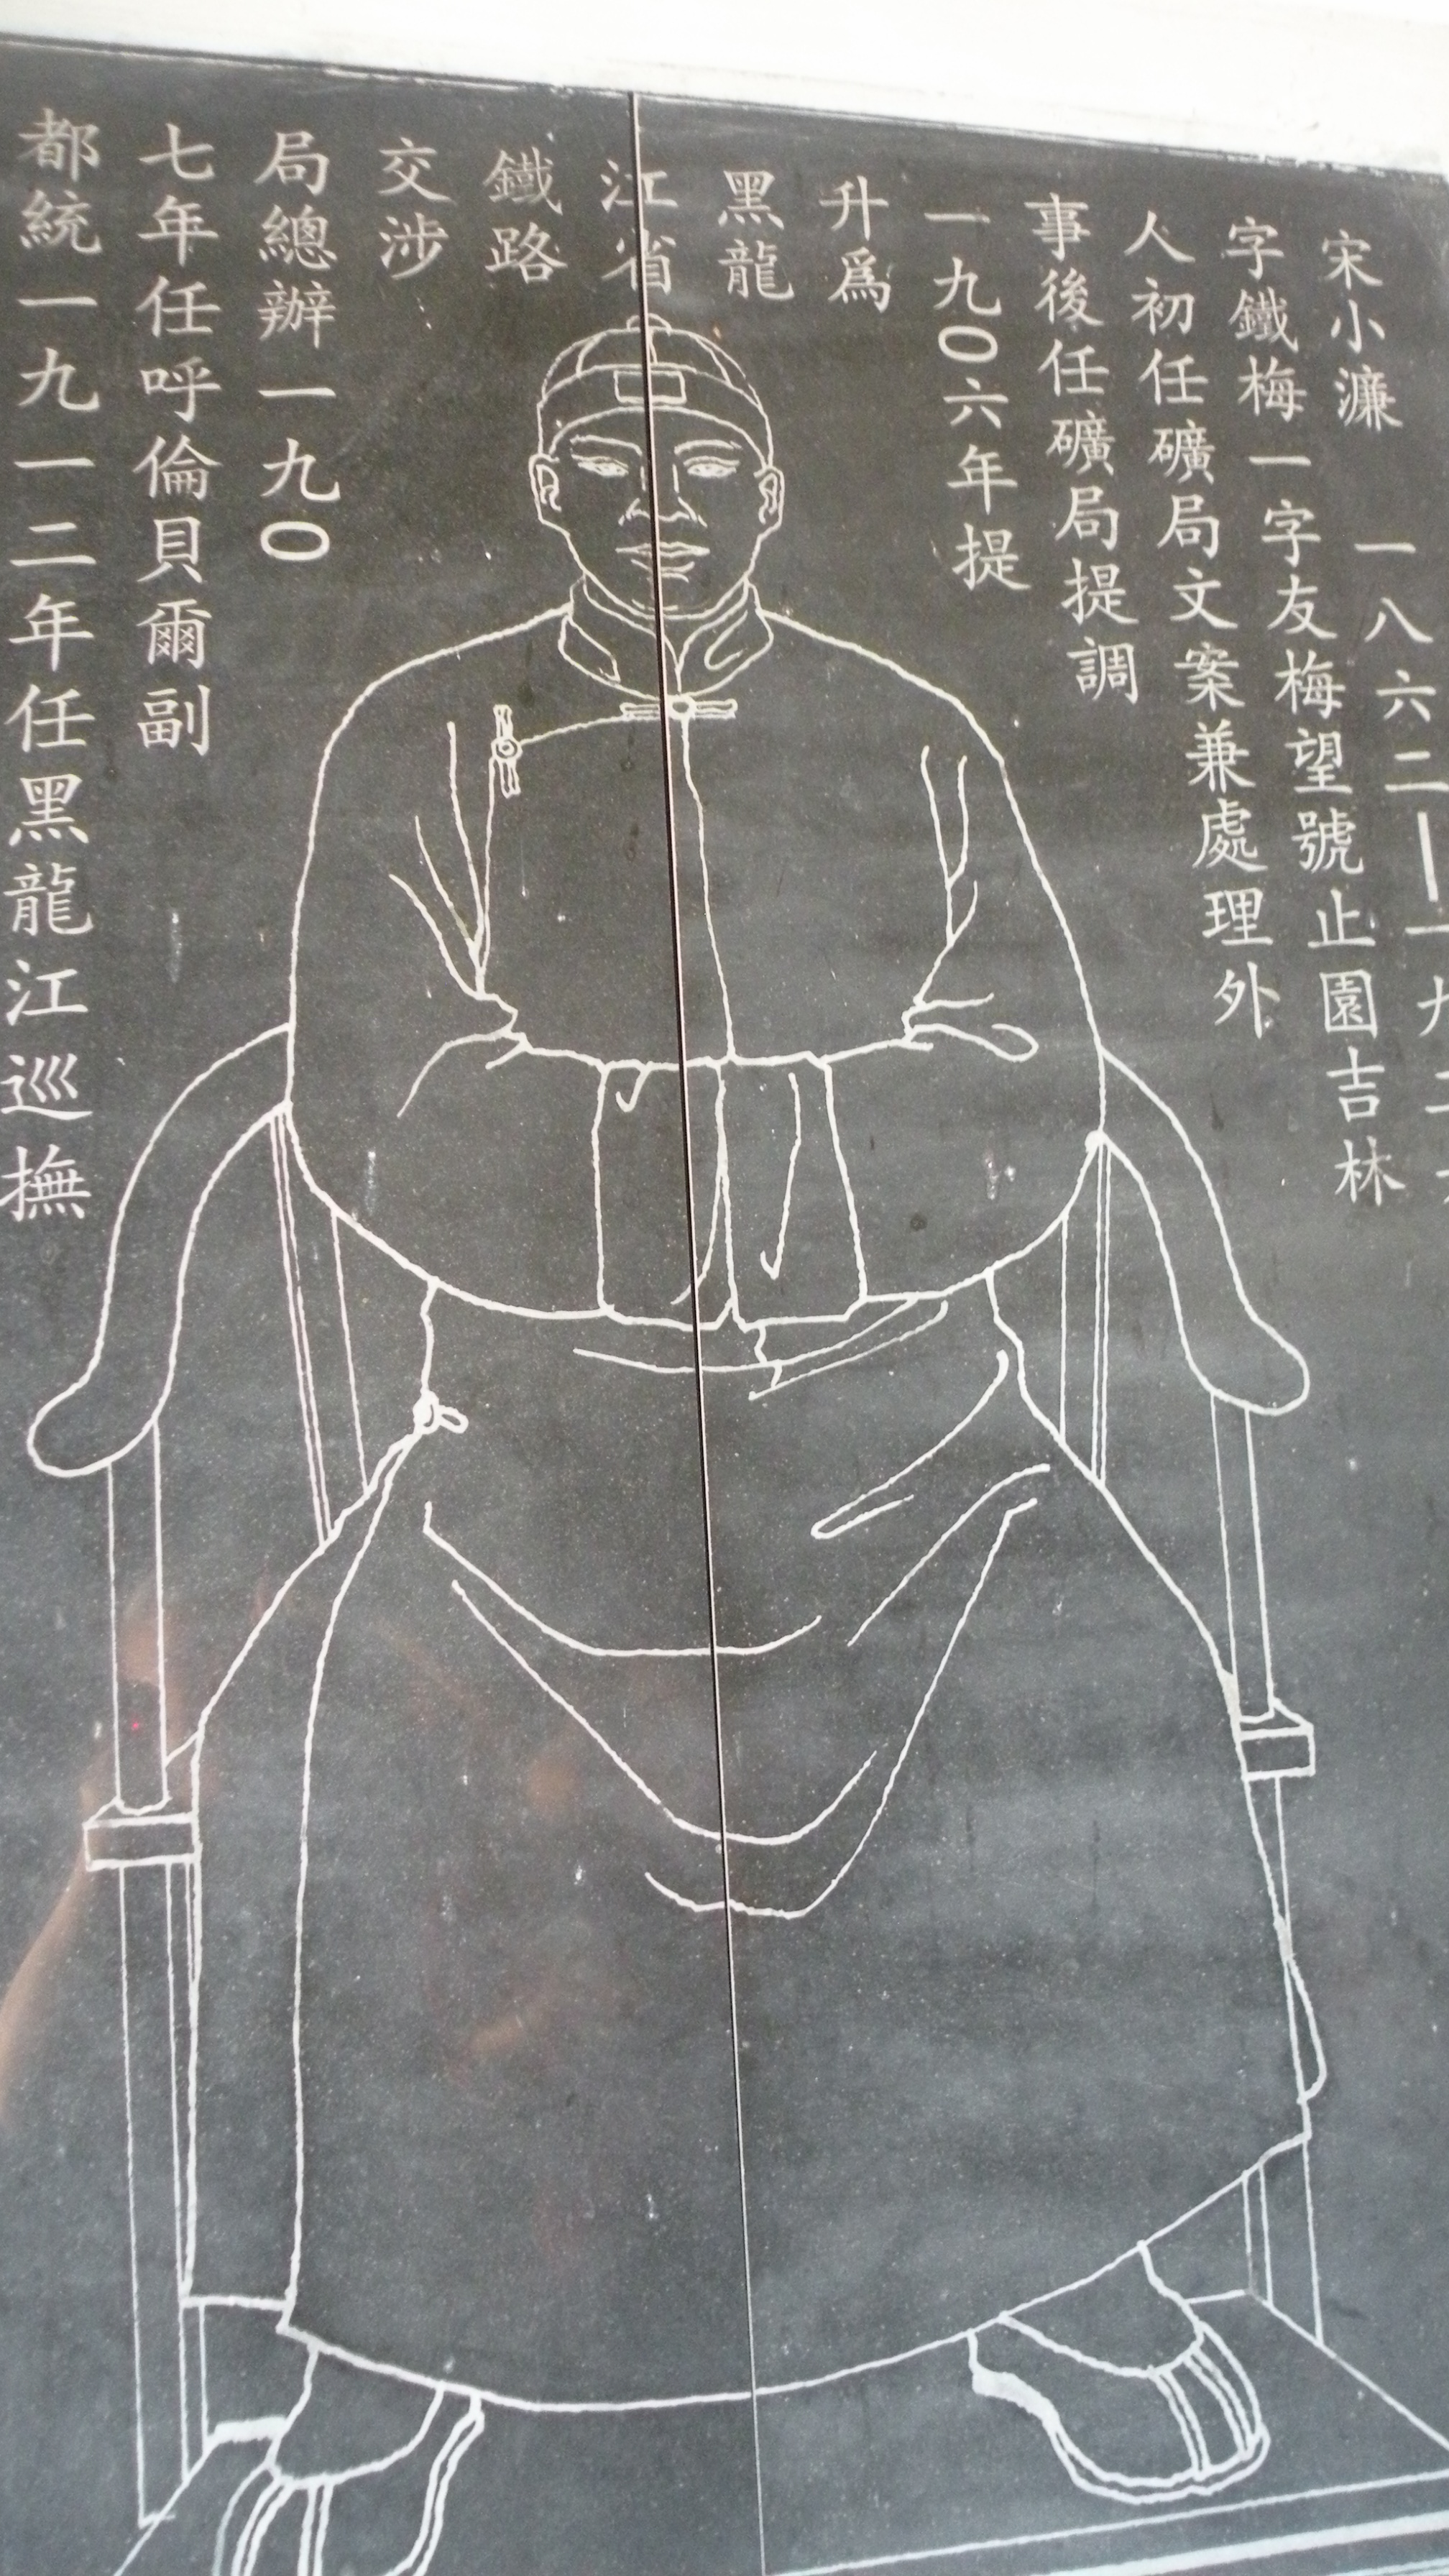 宋小濂 一八六二—一九二
字鐵梅一字友梅望號止園吉林
人初任礦局文案兼處理外
事後任礦局提調
一九〇六年提
升爲
黑龍
江省
鐵路
交涉
局總辦一九〇
七年任呼倫貝爾副
都統一九一二年任黑龍江巡撫